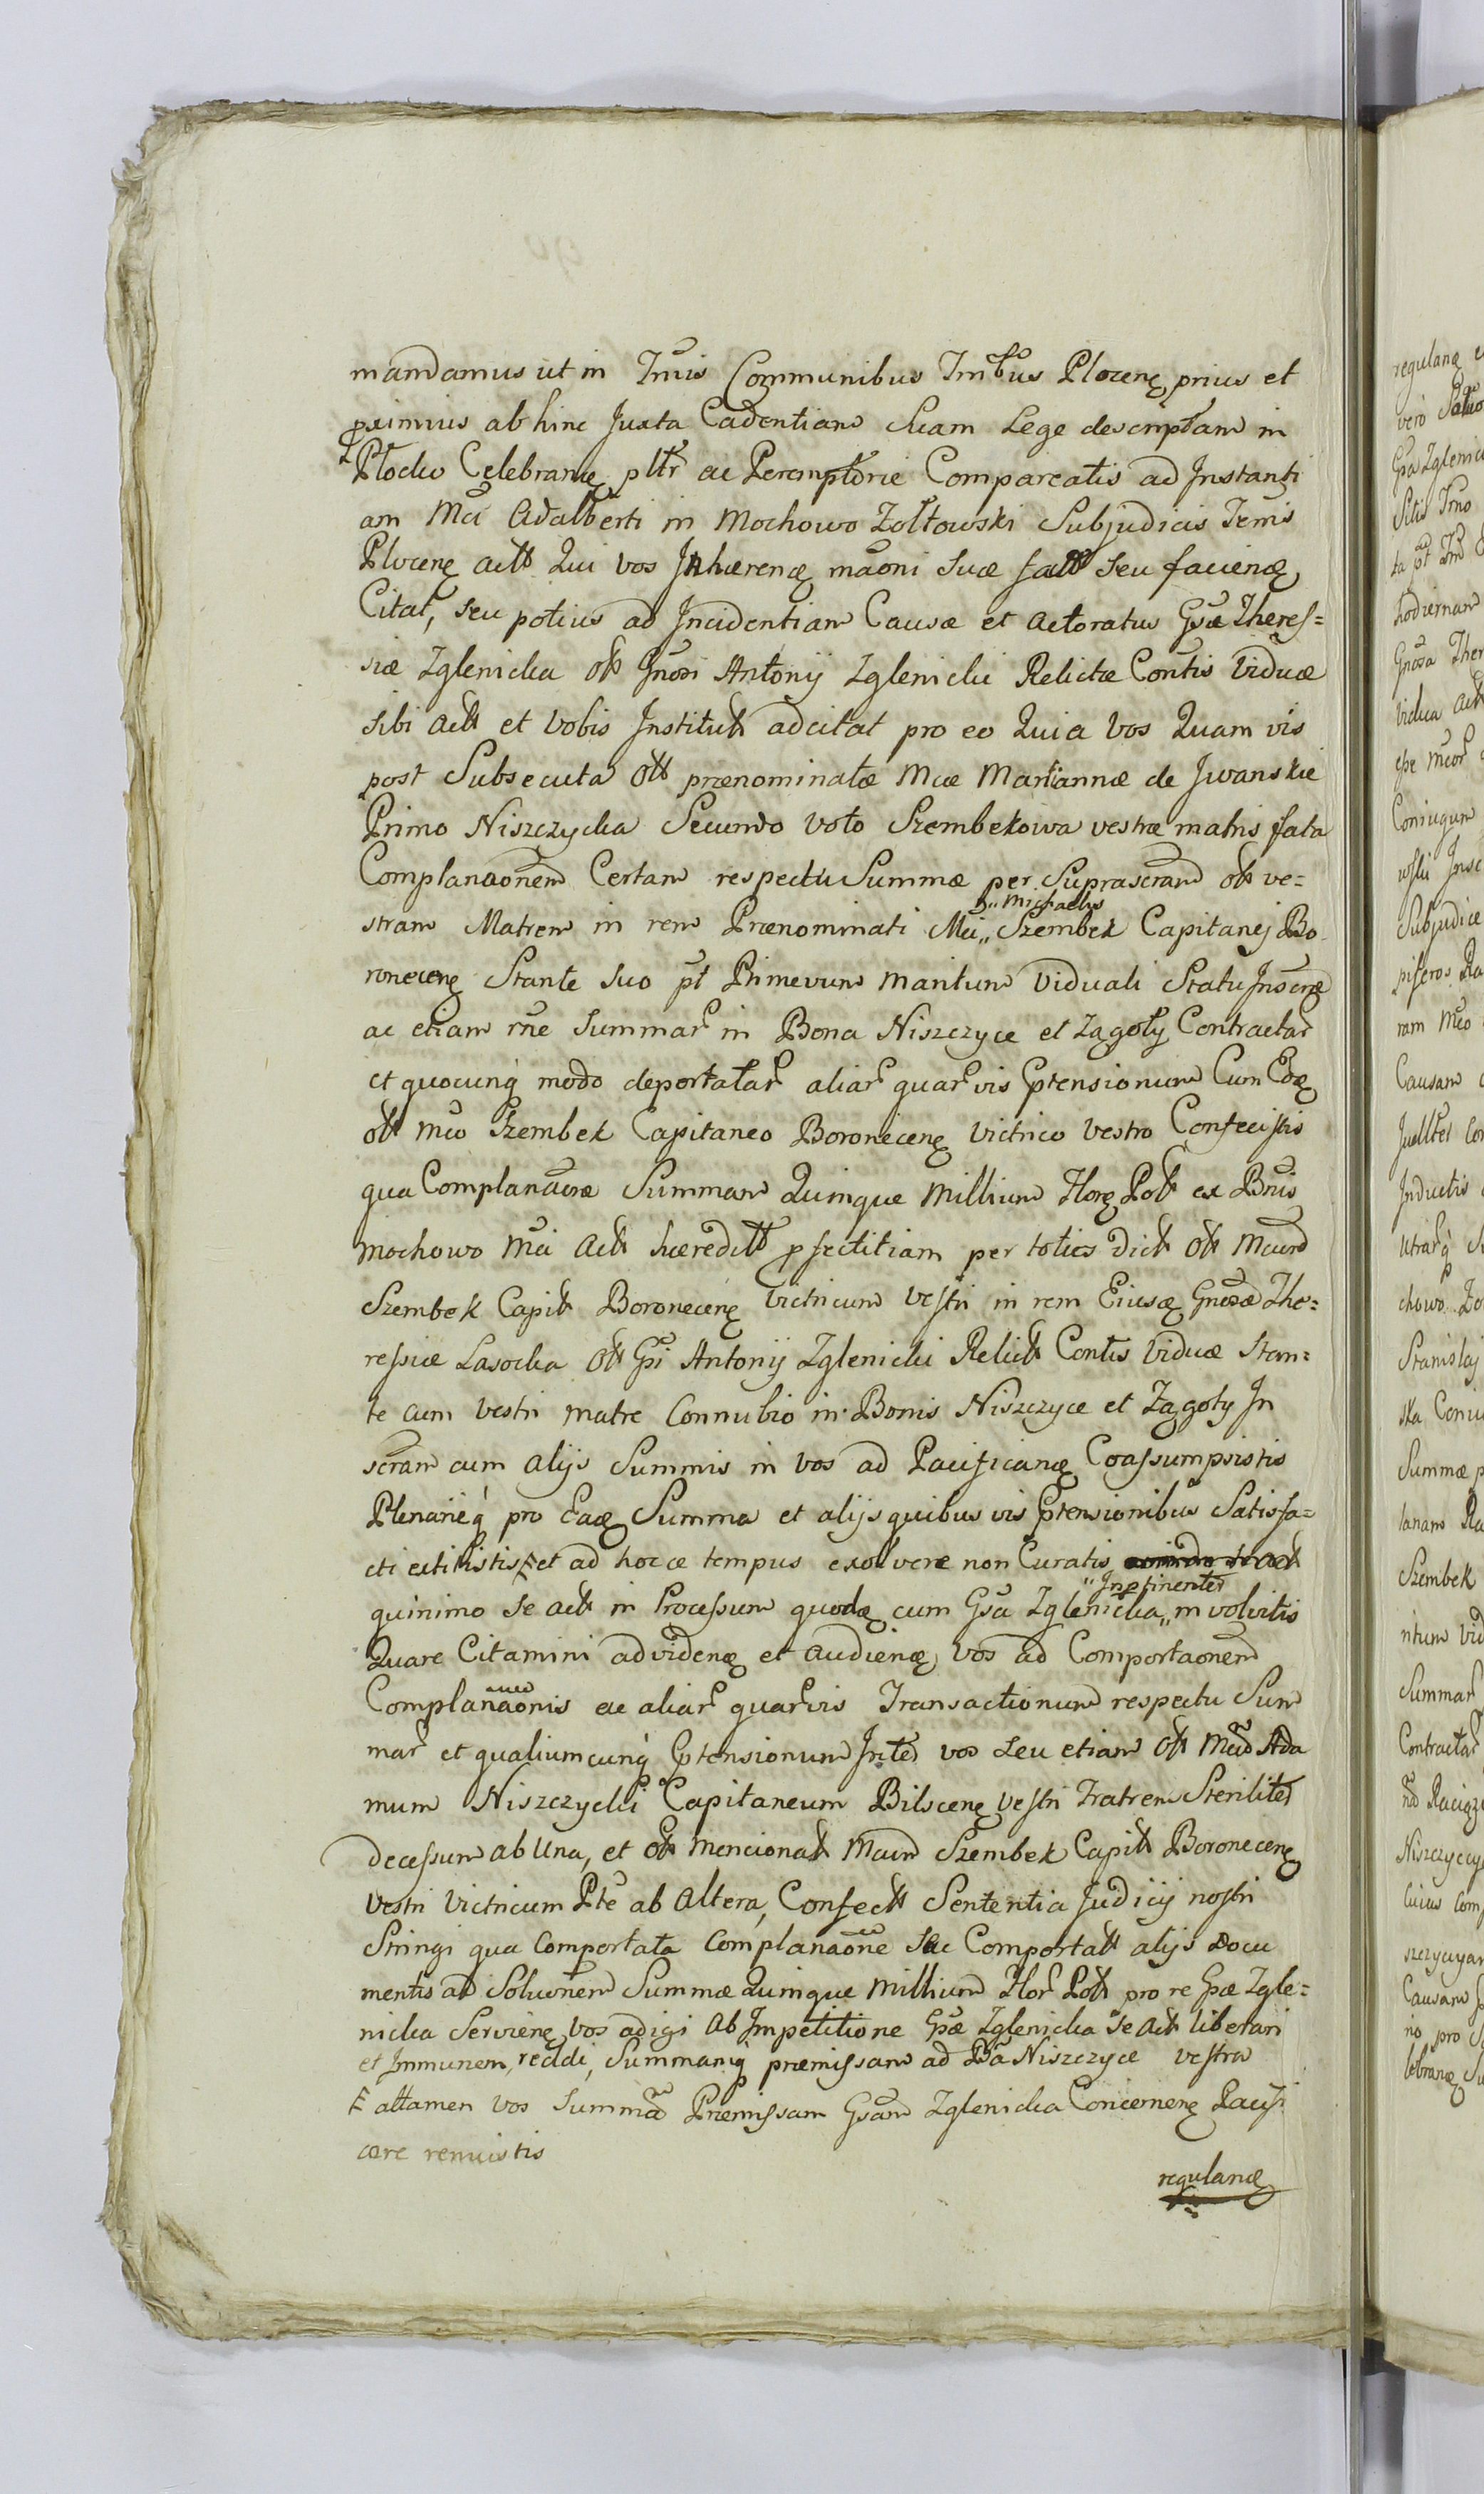 mandamus ut in Tr̄mis Communibus Trrib̄us Plocen prius et
proximius ab hinc Juxta Cadentiam Suam Lege descriptam in
Płocku Celebrand pltr ac Peremptorie Compareatis ad Instanti
am Mci Adalberti in Mochowo Zołtowski Subjudicis Terris
Plocen actt Qui vos Inhaerend m̄aoni suae fatt seu faciend
Citat, seu potius ad Incidentiam Causae et actoratus Gsae Theres=
siae Zglenicka olt Gnosi Antonij Zglenicki Relictae Contis Viduae
sibi actt et Vobis Institutt adcitat pro eo Quia Vos Quam vis
post Subsecuta Ott praenominatae Mcae Mariannae de Jwanskie
Primo Niszczycka Secundo Voto Szembekowa vestrae matris fata
Complanaonem Certam respectu Summae per Suprascram olt ve=
D„ Michaelis
stram Matrem in rem Praenominati Mci„ Szembek Capitanej Bo
ronecen Stante suo pt Primevum maritum Viduali Statu Inscrae
ac etiam rn̄e Summar in Bona Niszczyce et Zagoty Contractar
et quocunq̨ modo deportatar aliar quar vis Ptensionum Cum Eod
olt Mco Szembek Capitaneo Boronecen Victrico Vestro Confecistis
qua Complanaone Summam Quinque Millium Flor Poll ex Bnis
Mochowo Mci Actt haereditt pfectitiam per toties dictt Ott Mcum
Szembek Capitt Boronecen Victricum Vestri in rem Eiusd Gnosae The=
ressiae Lasocka Ott Gsi Antonij Zglenicki Relictt Contis Viduae Stan=
te cum Vestri matre Connubio in Bonis Niszczyce et Zagoty In
scram cum alijs Summis in vos ad Pacificand Coassumpsistis
Plenarieq̨ pro Ead Summa et alijs quibus vis Ptensionibus Satisfa=
cti extitistis F et ad hocce tempus exolvere non Curatis
„Inptinenter
quinimo se actt in Processum quend cum Gsa Zglenicka„ involvitis
Quare Citamini ad videnđ et audienđ Vos ad Comportaonem
Complanaonis ac aliar quar vis Transactionum respectu Sum
mar et qualiumcunq̨ Ptensionum Inter vos seu etiam Olt Mcum Ada
mum Niszczycki Capitaneum Bilscen Vestri Fratrem Steriliter
decessum ab Una, et Olt Mencionatt Mcum Szembek Capitt Boronecen
Vestri Victricum Pte ab Altera, Confectt Sententia Judicij nostri
Stringi qua Comportata Complanaone seu Comportatt alijs Docu
mentis ad Soluonem Summae Quinque Millium Flor Poll pro re Gsae Zgle=
nicka Serviend Vos adigi Ab Impetitione Gsae Zglenicka Se Actt liberari
et Immunem reddi, Summamq̨ praemissam ad Ba Niszczyce vestra
F attamen Vos Summam Praemissam Gsam Zglenicka Concernen Pacifi
care renuistis
reguland